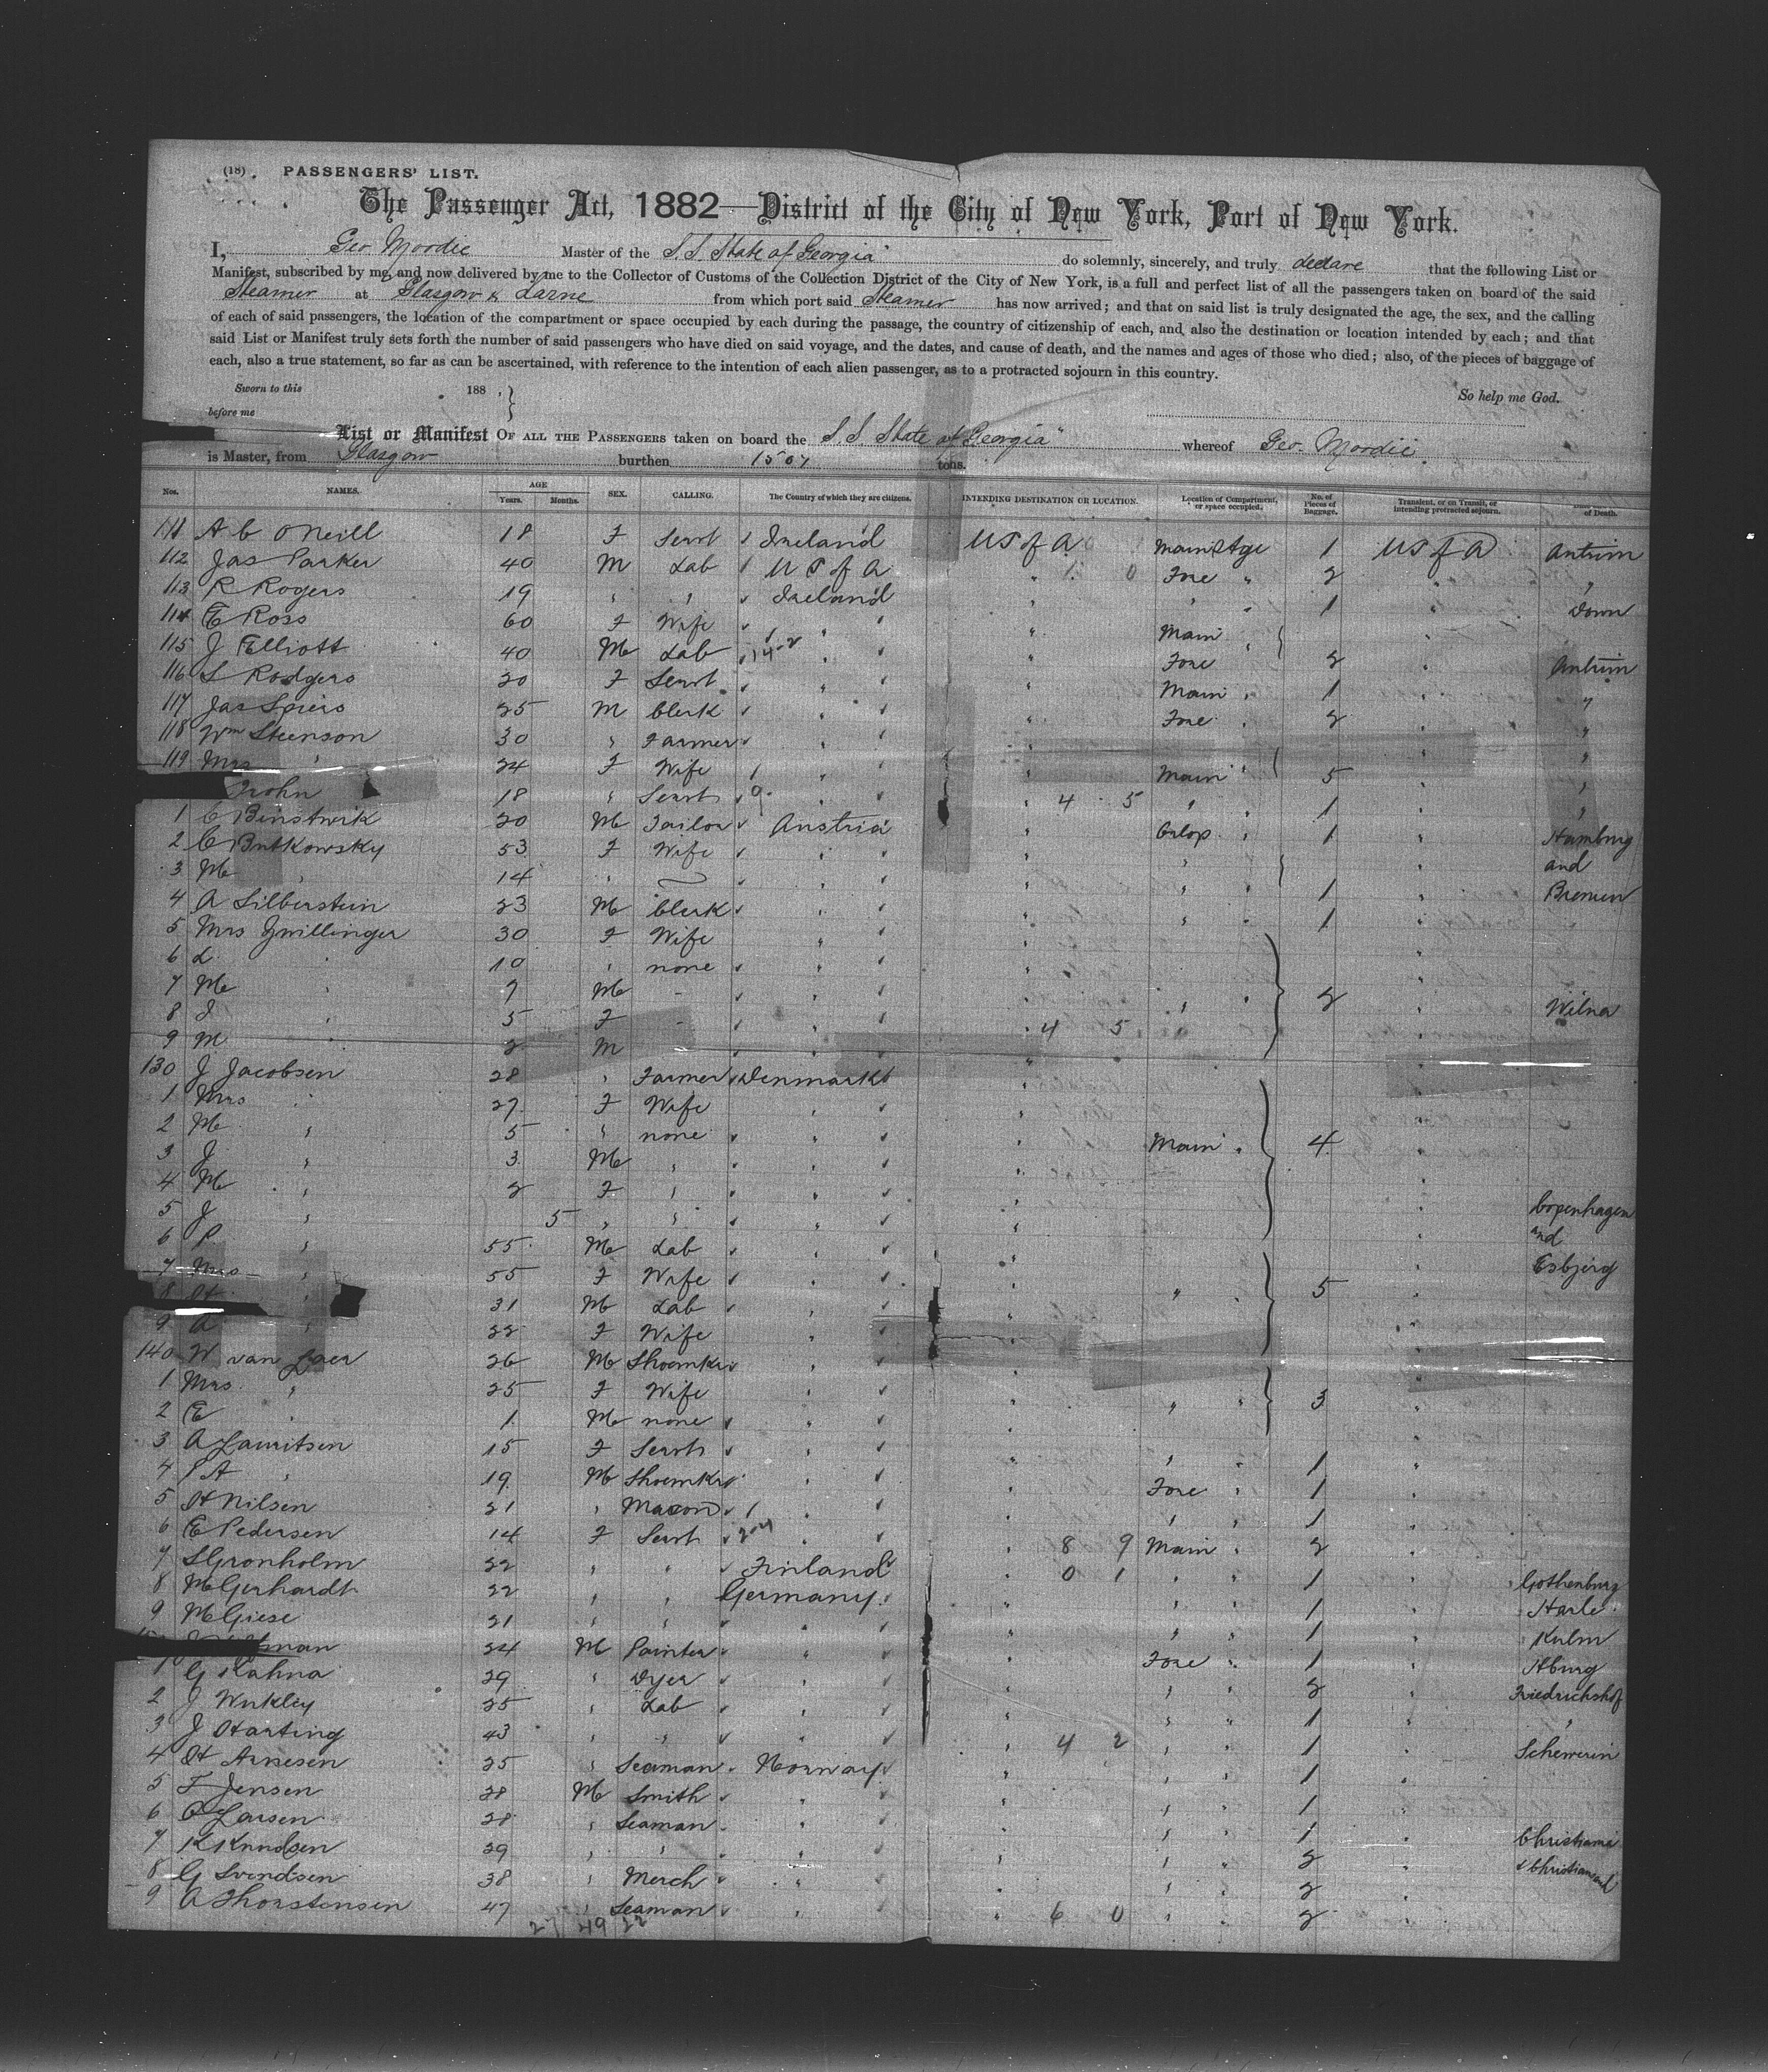 (18) PASSENGERS' LIST.
The Passenger Act, 1882—District of the City of New York, Port of New York.
I, Geo. Moodie Master of the S.S. State of Georgia" do solemnly, sincerely, and truly declare that the following List or
Manifest, subscribed by me, and now delivered by me to the Collector of Customs of the Collection District of the City of New York, is a full and perfect list of all the passengers taken on board of the said
Steamer at Glasgow & Larne from which port said Steamer has now arrived; and that on said list is truly designated the age, the sex, and the calling
of each of said passengers, the location of the compartment or space occupied by each during the passage, the country of citizenship of each, and also the destination or location intended by each; and that
said List or Manifest truly sets forth the number of said passengers who have died on said voyage, and the dates, and cause of death, and the names and ages of those who died; also, of the pieces of baggage of
each, also a true statement, so far as can be ascertained, with reference to the intention of each alien passenger, as to a protracted sojourn in this country.
Sworn to this 188 . } So help me God.
before me
List or Manifest OF ALL THE PASSENGERS taken on board the S.S State of Georgia" whereof Geo. Moodie
is Master, from Glasgow burthen 1507 tons.
Nos. NAMES. AGE Years. Months. SEX. CALLING. The Country of which they are citizens. INTENDING DESTINATION OR LOCATION. Location of Compartment, or space occupied. No. of Pieces of Baggage. Transient, or on Transit, or intending protracted sojourn. of Death.
111 A C O'Neill 18 F Servt Ireland US of A Main Stge 1 US of A Antrim
112 Jas Parker 40 M Lab US of A " 1 0 Fore " 2 " "
113 R Rogers 19 " " Ireland " " " 1 " Down
114 E Ross 60 F Wife " " Main "
115 J Elliott 40 M Lab " " Fore " 2 " Antrim
116 S Rodgers 20 F Servt " " Main " 1 " "
117 Jas Speirs 25 M Clerk " " Fore " 2 " "
118 Wm Steenson 30 " Farmer " " " "
119 Mrs " 24 F Wife " " Main " 5 " "
John 18 " Servt " " 4 5 " 1 " "
1 C Binstwik 20 M Tailor Austria " Orlop " 1 " Hamburg
2 C Butkowsky 53 F Wife " " " " and
3 M " 14 " " " " " 1 " Bremen
4 A Silberstein 23 M Clerk " " " " 1 "
5 Mrs Zwillinger 30 F Wife " " "
6 L " 10 " none " " "
7 M " 7 M - " " " " 2 " Wilna
8 I " 5 F - " " 4 5 "
9 M " 2 M " " "
130 J Jacobsen 28 " Farmer Denmark "
1 Mrs " 27 F Wife " " "
2 M " 5 " none " " Main " 4 "
3 J " 3 M " " " "
4 M " 2 F " " " "
5 J " 5 " " " " " Copenhagen
6 P " 55 M Lab " " " and
7 Mrs " 55 F Wife " " " Esbjerg
8 H " 31 M Lab " " " " 5 "
9 A " 22 F Wife " " "
140 W van Laer 26 M Shoemkr " " "
1 Mrs " 25 F Wife " " "
2 E " 1 M none " " " " 3 "
3 A Lauritsen 15 F Servt " " " " 1 "
4 P A " 19 M Shoemkr " " Fore " 1 "
5 H Nilsen 21 " Mason " " " " 1 "
6 E Pedersen 14 F Servt " " 8 9 Main " 2 "
7 S Gronholm 22 " " Finland " 0 1 " " 1 " Gothenburg
8 M Gerhardt 22 " " Germany " " " 1 " Harle
9 M Giese 21 " " " " " " 1 " Kulm
man 24 M Painter " " Fore " 1 " Hburg
1 G Kahna 29 " Dyer " " " " 2 " Friedrichshof
2 J Wukley 25 " Lab " " " " 1 " "
3 J Harting 43 " " " " 4 2 " " 1 " Schwerin
4 H Arnesen 25 " Seaman Norway " " " 1 "
5 F Jensen 28 M Smith " " " " 1 "
6 O Larsen 28 " Seaman " " " " 1 " Christiania
7 K Knudsen 29 " " " " " " 2 " & Christiansand
8 G Svendsen 38 " Merch " " " " 2 "
9 A Thorstensen 47 " Seaman " " 6 0 " " 2 "
27 49 22